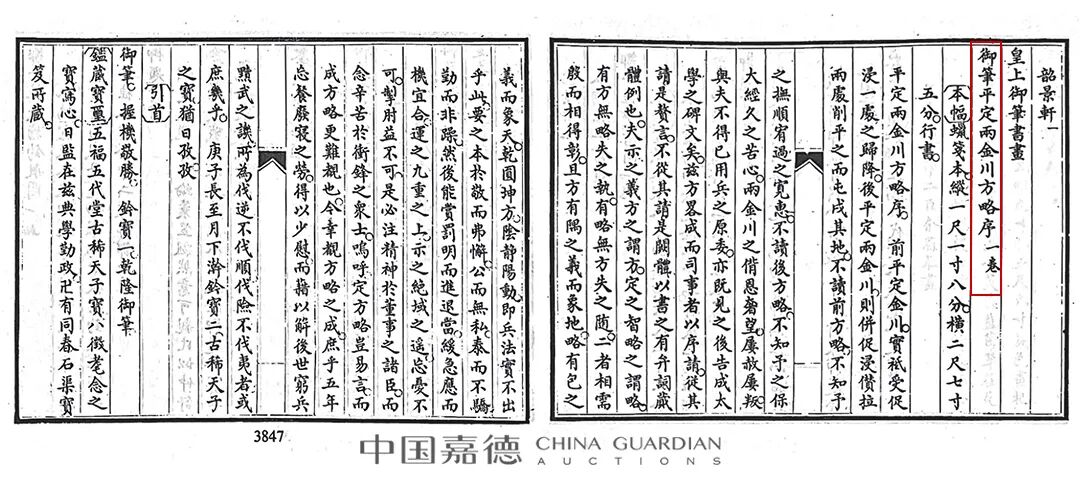 韶景軒一
皇上御筆書畫
御筆平定兩金川方略序一卷
本幅蠟箋本縱一尺一寸八分橫二尺七寸
五分行書
平定兩金川方略序 前平定金川實祗受促
浸一處之歸降後平定兩金川則併促浸儹拉
兩處削平之而屯戍其地不讀前方略不知予
之撫順宥過之寬惠不讀後方略不知予之保
大經久之苦心兩金川之偕恩奢望屢赦屢叛
與夫不得已用兵之原委亦既見之後告成太
學之碑文矣茲方畧成而司事者以序請從其
請是贅言不從其請是闕體以書之有弁詞歲
體例也夫示之義方之謂方定之智略之謂略
有方無略失之執有略無方失之隨二者相需
殷而相得彰且方有隅之義而象地略有包之
義而象天乾圓坤方陰靜陽動即兵法實不出
乎此要之本於敬而弗懈公而無私泰而不驕
勤而非躁然後能賞罰明而進退當緩急應而
機宜合運之九重之上示之絶域之遥忘憂不
可掣肘益不可是必注精神於董事之諸臣而
念辛苦於銜鋒之衆士嗚呼定方略豈易言而
成方略更難覩也今幸覩方略之成庶乎五年
忘餐廢寢之勞得以少慰而藉以解後世窮兵
黷武之譏所為伐逆不伐順伐險不伐夷者或
庶幾乎 庚子長至月下澣鈐寶二古稀天子
之寶猶日孜孜
引首
御筆 握機敬勝 鈐寶一乾隆御筆
鑑藏寶璽五福五代堂古稀天子寶八徵耄念之
寶寫心日監在茲典學勤政卍有同春石渠寶
笈所藏
3847
中国嘉德 CHINA GUARDIAN
AUCTIONS